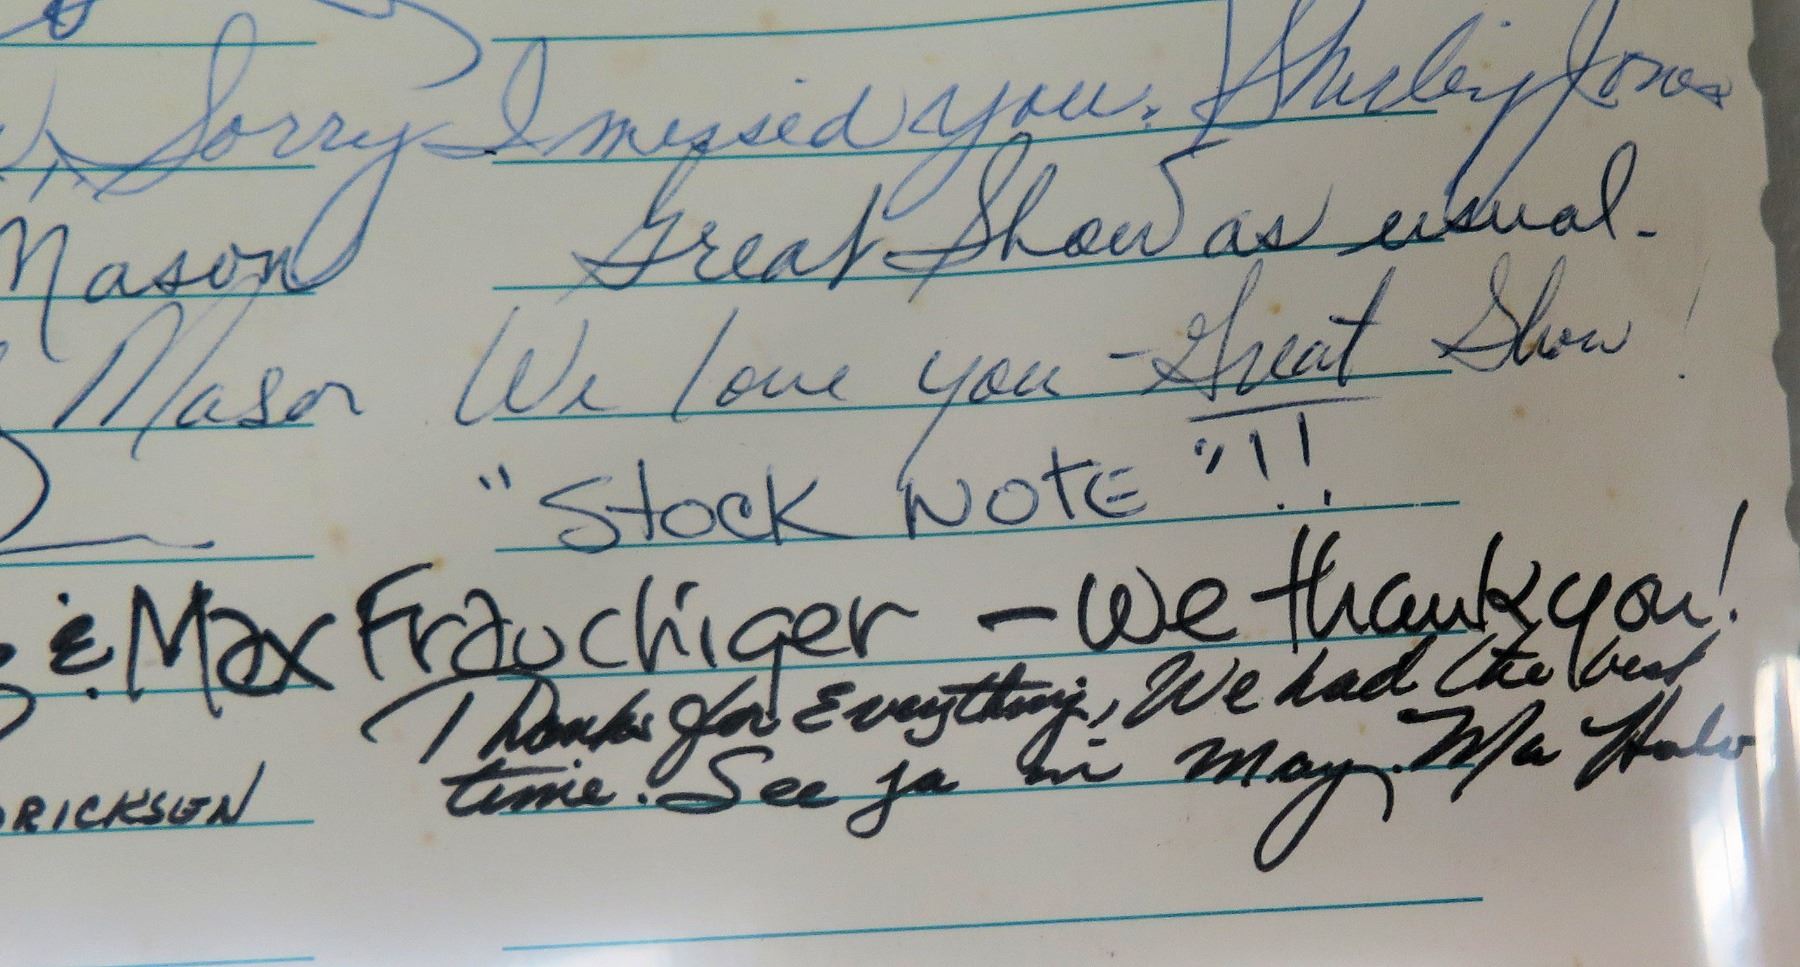 Sorry I missed you. Shirley Jones
Mason Great Show as usual.
Mason We love you - Great Show!
"Stock NOTE"!!
& Max Frauchiger - We thank you!
Thanks for Everything, We had the best
time. See ja in May. Ma
RICKSEN